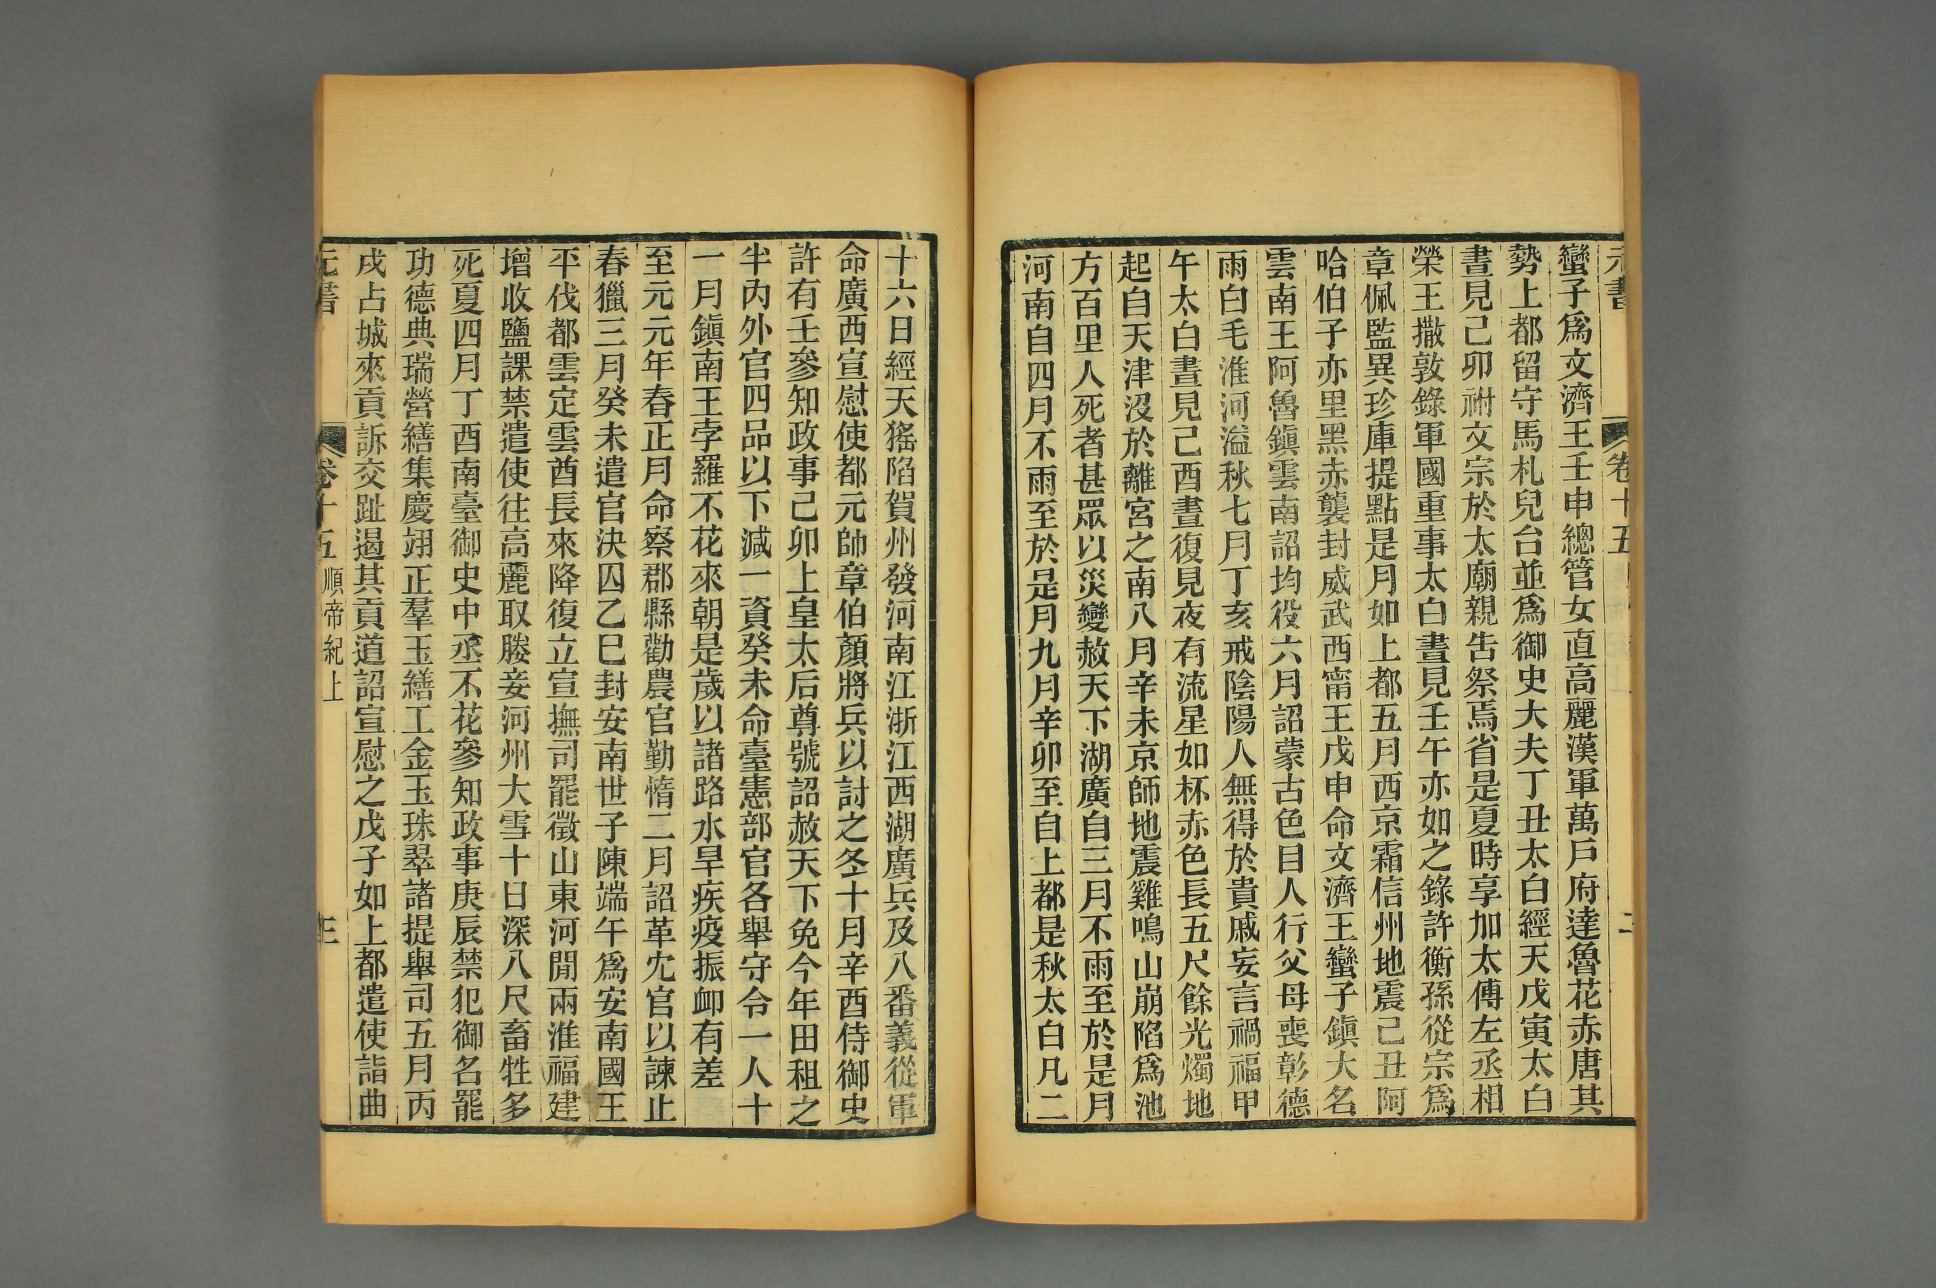 元書
卷十五
二
蠻子爲文濟王壬申總管女直高麗漢軍萬戸府達魯花赤唐其
勢上都留守馬札兒台並爲御史大夫丁丑太白經天戊寅太白
晝見己卯祔文宗於太廟親告祭焉省是夏時享加太傅左丞相
榮王撒敦錄軍國重事太白晝見壬午亦如之錄許衡孫從宗爲
章佩監異珍庫提點是月如上都五月西京霜信州地震己丑阿
哈伯子亦里黑赤襲封威武西甯王戊申命文濟王蠻子鎭大名
雲南王阿魯鎭雲南詔均役六月詔蒙古色目人行父母喪彰德
雨白毛淮河溢秋七月丁亥戒陰陽人無得於貴戚妄言禍福甲
午太白晝見己酉晝復見夜有流星如杯赤色長五尺餘光燭地
起自天津沒於離宮之南八月辛未京師地震雞鳴山崩陷爲池
方百里人死者甚眾以災變赦天下湖廣自三月不雨至於是月
河南自四月不雨至於是月九月辛卯至自上都是秋太白凡二
十六日經天猺陷賀州發河南江浙江西湖廣兵及八番義從軍
命廣西宣慰使都元帥章伯顏將兵以討之冬十月辛酉侍御史
許有壬參知政事己卯上皇太后尊號詔赦天下免今年田租之
半內外官四品以下減一資癸未命臺憲部官各舉守令一人十
一月鎭南王孛羅不花來朝是歲以諸路水旱疾疫振卹有差
至元元年春正月命察郡縣勸農官勤惰二月詔革宂官以諫止
春獵三月癸未遣官決囚乙巳封安南世子陳端午爲安南國王
平伐都雲定雲酋長來降復立宣撫司罷徵山東河閒兩淮福建
增收鹽課禁遣使往高麗取媵妾河州大雪十日深八尺畜牲多
死夏四月丁酉南臺御史中丞不花參知政事庚辰禁犯御名罷
功德典瑞營繕集慶翊正羣玉繕工金玉珠翠諸提舉司五月丙
戌占城來貢訴交趾遏其貢道詔宣慰之戊子如上都遣使詣曲
元書
卷十五
順帝紀上
三